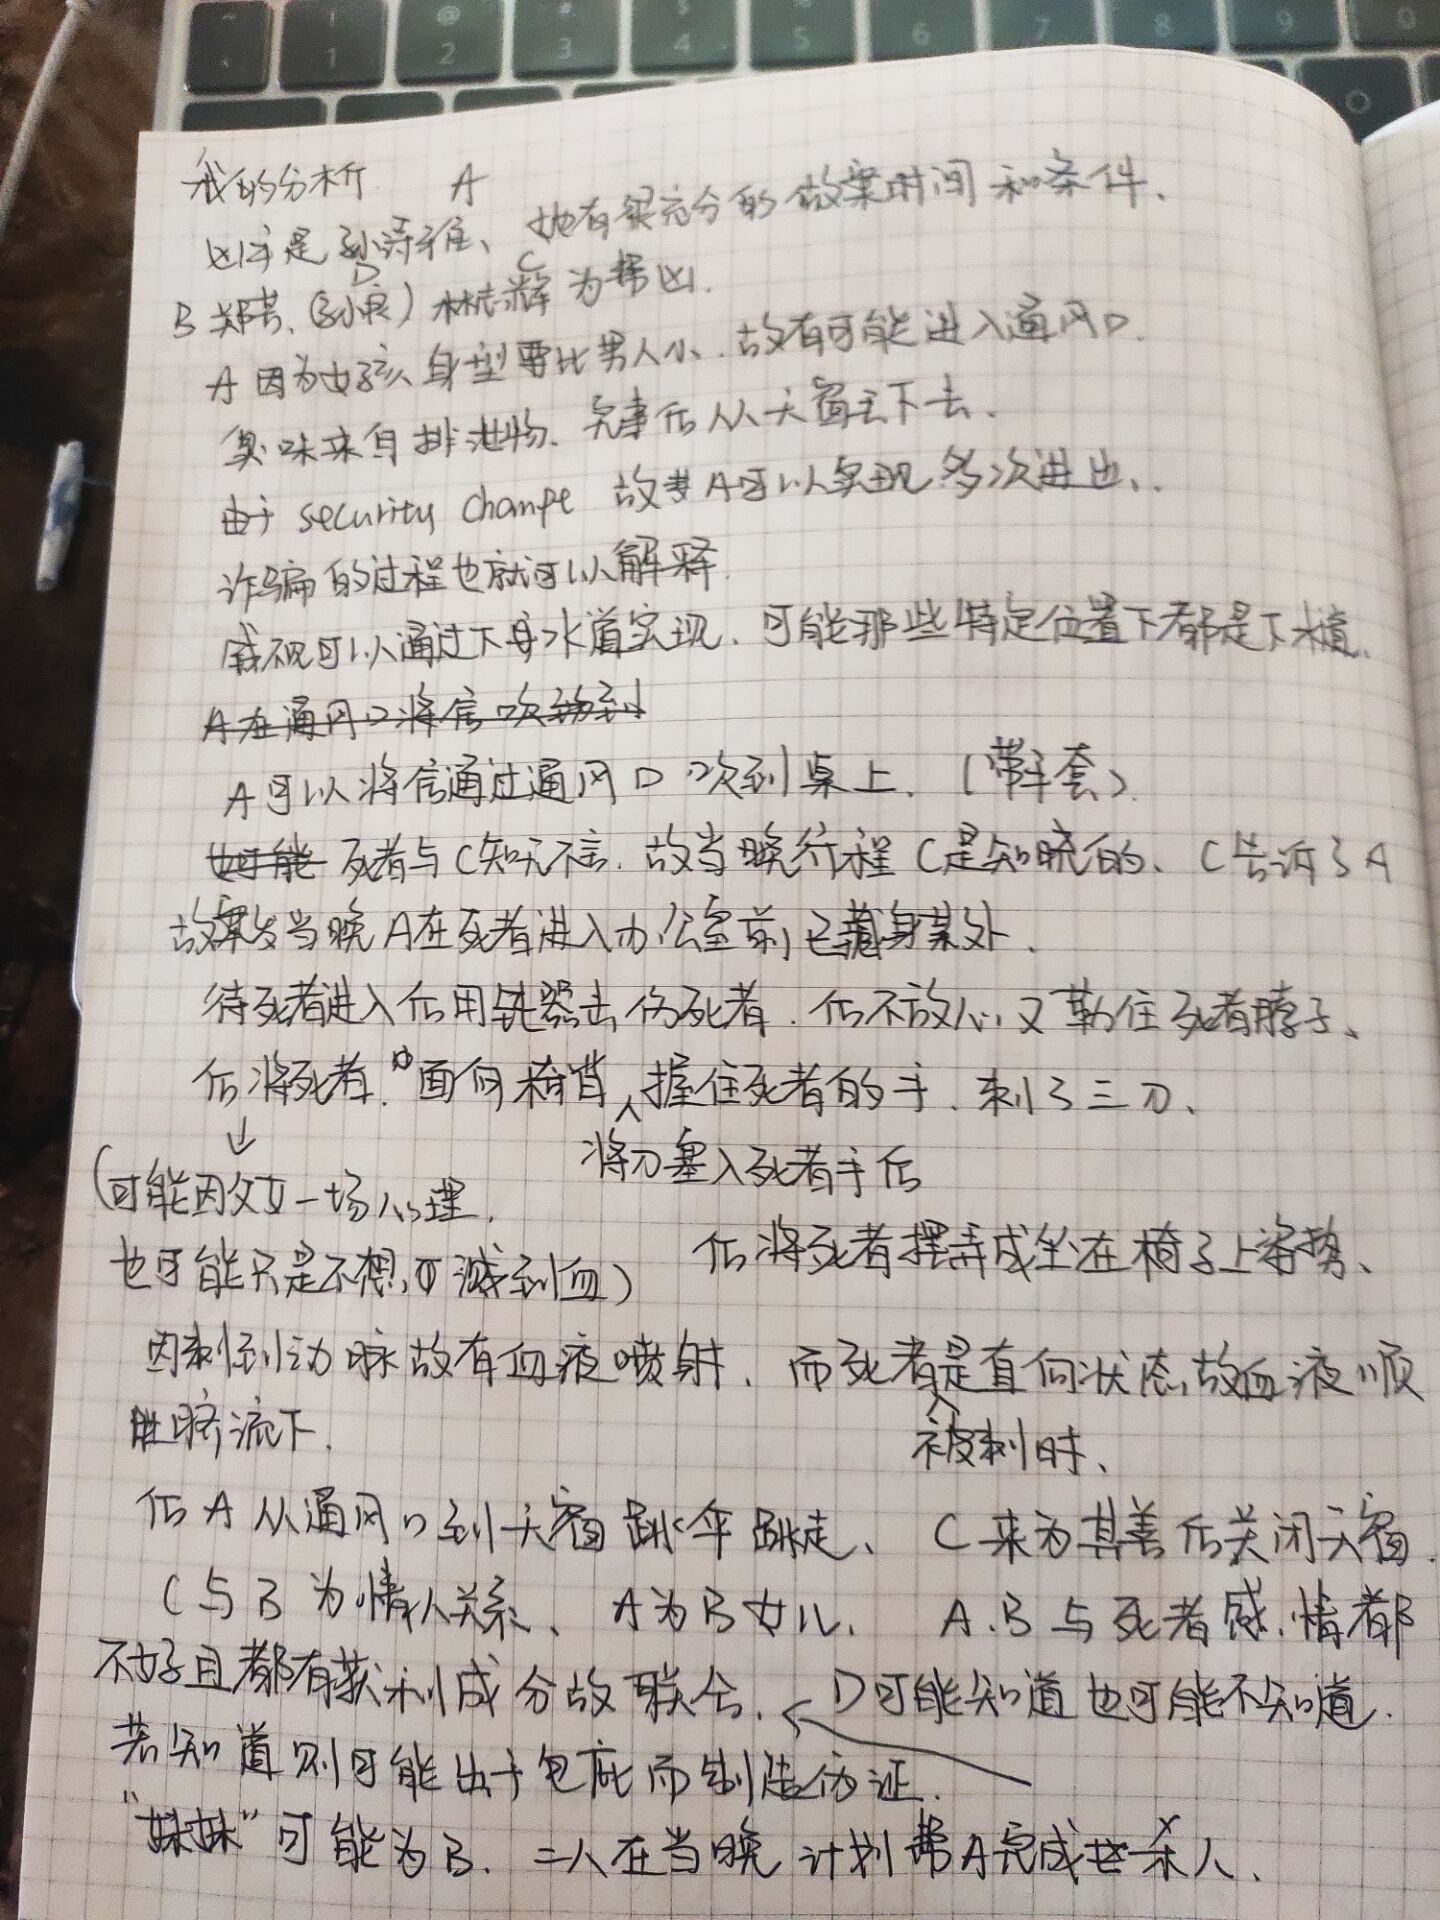 我的分析 A
凶手是孙诗雅、她有很充分的做案时间和条件、
D C
B 郑芸、(孙良) 林志辉 为帮凶.
A 因为女孩、身型要比男人小、故有可能进入通风口.
臭味来自排泄物、完事后从天窗丢下去、
由于 security change 故 A可以实现多次进出、
诈骗的过程也就可以解释.
威视可以通过下水道实现、可能那些特定位置下都是下水道、
A在通风口将信吹到
A可以将信通过通风口吹到桌上、(带手套)
也可能 死者与C知无不言、故当晚行程C是知晓的、C告诉了A
故案发当晚A在死者进入办公室前已藏身某处、
待死者进入后用钝器击伤死者、后不放心又勒住死者脖子、
后将死者 面向椅背、握住死者的手、刺了三刀、
将刀塞入死者手后
(可能因父女一场心理,
也可能只是不想 溅到血)
后将死者摆弄成坐在椅子上姿势、
因刺到动脉故有血液喷射、而死者是直向状态故血液顺
被刺时、
肚脐流下.
后A从通风口到天窗跳伞跳走、C来为其善后关闭天窗.
C与B为情人关系、A为B女儿、A.B与死者感情都
不好且都有获利成分故联合. D可能知道也可能不知道.
若知道则可能出于包庇而制造伪证.
"妹妹"可能为B. 二人在当晚计划帮A完成杀人、
1 2 3 4 5 6 7 8 9 0
@ # $
O